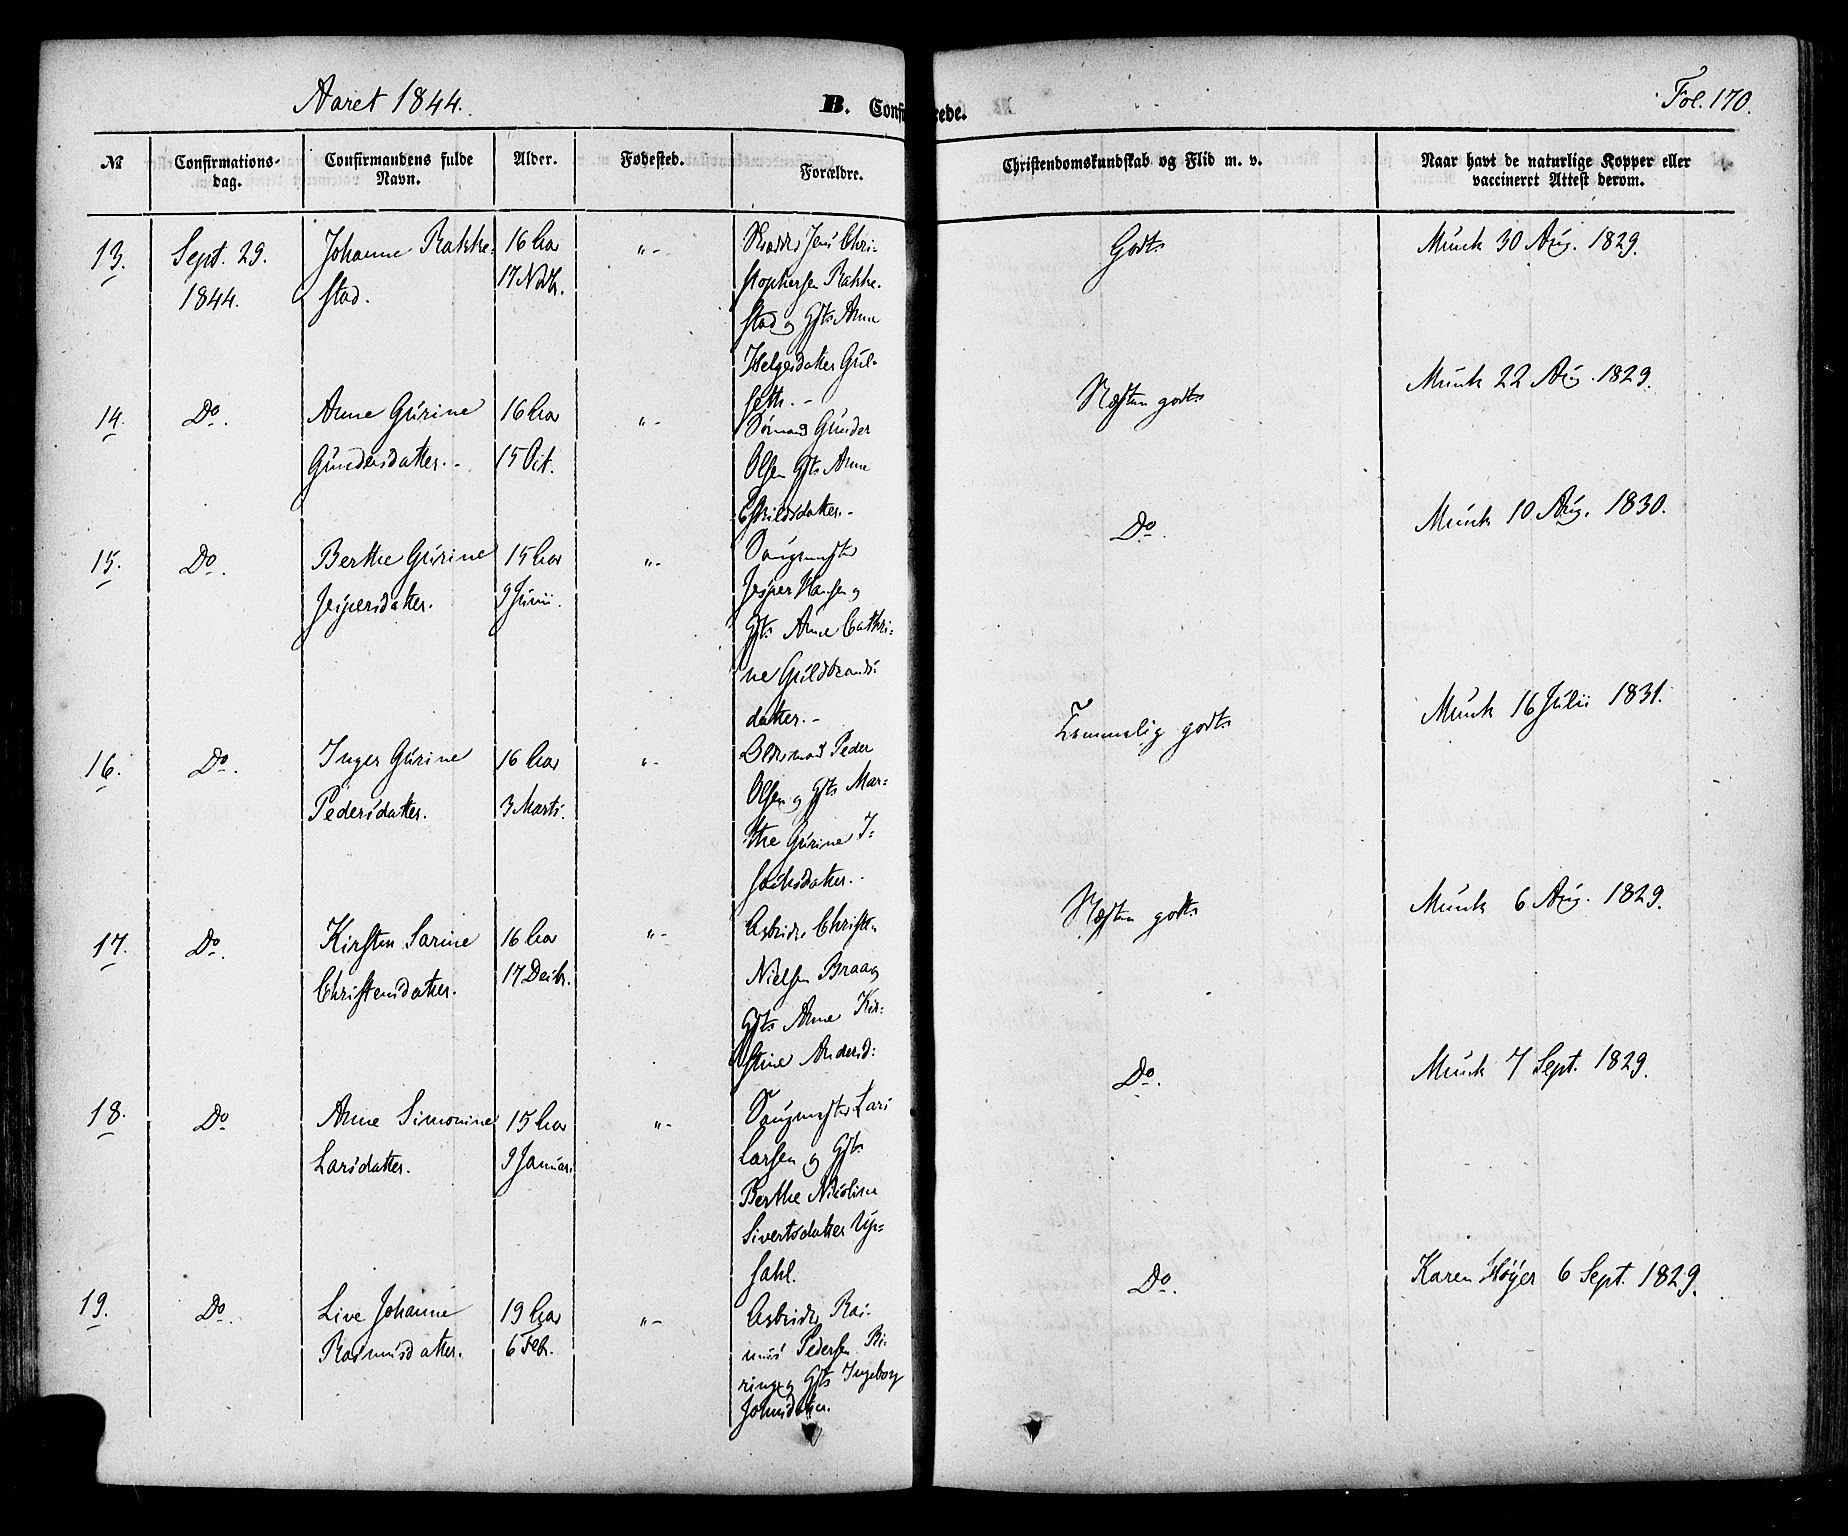 Aaret 1844.
B. Conf rede.
Fol. 170.
№
Confirmations-
dag.
Confirmandens fulde
Navn.
Alder.
Fødested.
Forældre.
Christendomskundskab og Flid m. v.
Naar havt de naturlige Kopper eller
vaccineret Attest derom.
13.
Sept. 29.
1844.
Johanne Rakke-
stad.
16 Aar
17 Novbr.
"-
Jens Chri-
stophersen Rakke-
stad og Gjts Anne
Helgesdatter Gul-
seth.-
Godt
Munk 30 Aug. 1829.
14.
Do.
Anne Gurine
Gundersdatter.-
16 Aar
15 Oct.
"-
Sømand Gunder
Olsen Gjts Anne
Eskildsdatter.-
Næsten godt
Munk 22 Aug. 1829.
15.
Do.
Berthe Gurine
Jespersdatter.
15 Aar
9 Junii.
"-
Saugmester
Jesper Hansen og
Gjts Anne Cathri-
ne Guldbrands-
datter.-
Do.
Munk 10 Aug. 1830.
16.
Do.
Inger Gurine
Pedersdatter.
16 Aar
3 Marts.
"-
Oldermand Peder
Olsen og Gjts Mar-
the Gurine I-
sachsdatter.-
Temmelig godt
Munk 16 Julii 1831.
17.
Do.
Kirsten Sarine
Christensdatter.
16 Aar
17 Decbr.
"-
Arbeider Christen
Nielsen Braa og
Gjts Anne Kir-
stine Andersd:
Næsten godt
Munk 6 Aug. 1829.
18.
Do.
Anne Simonine
Larsdatter.
15 Aar
9 Januar
"-
Saugmester Lars
Larsen og Gjts
Berthe Nicoline
Sivertsdatter Up-
sahl.
Do.
Munk 7 Sept. 1829.
19.
Do.
Live Johanne
Rasmusdatter.
19 Aar
6 Febr.
"-
Arbeider Ras-
mus Pedersen Bi-
ring og Gjts Ingeborg
Johnsdatter.
Do.
Karen Høyer 6 Sept. 1829.